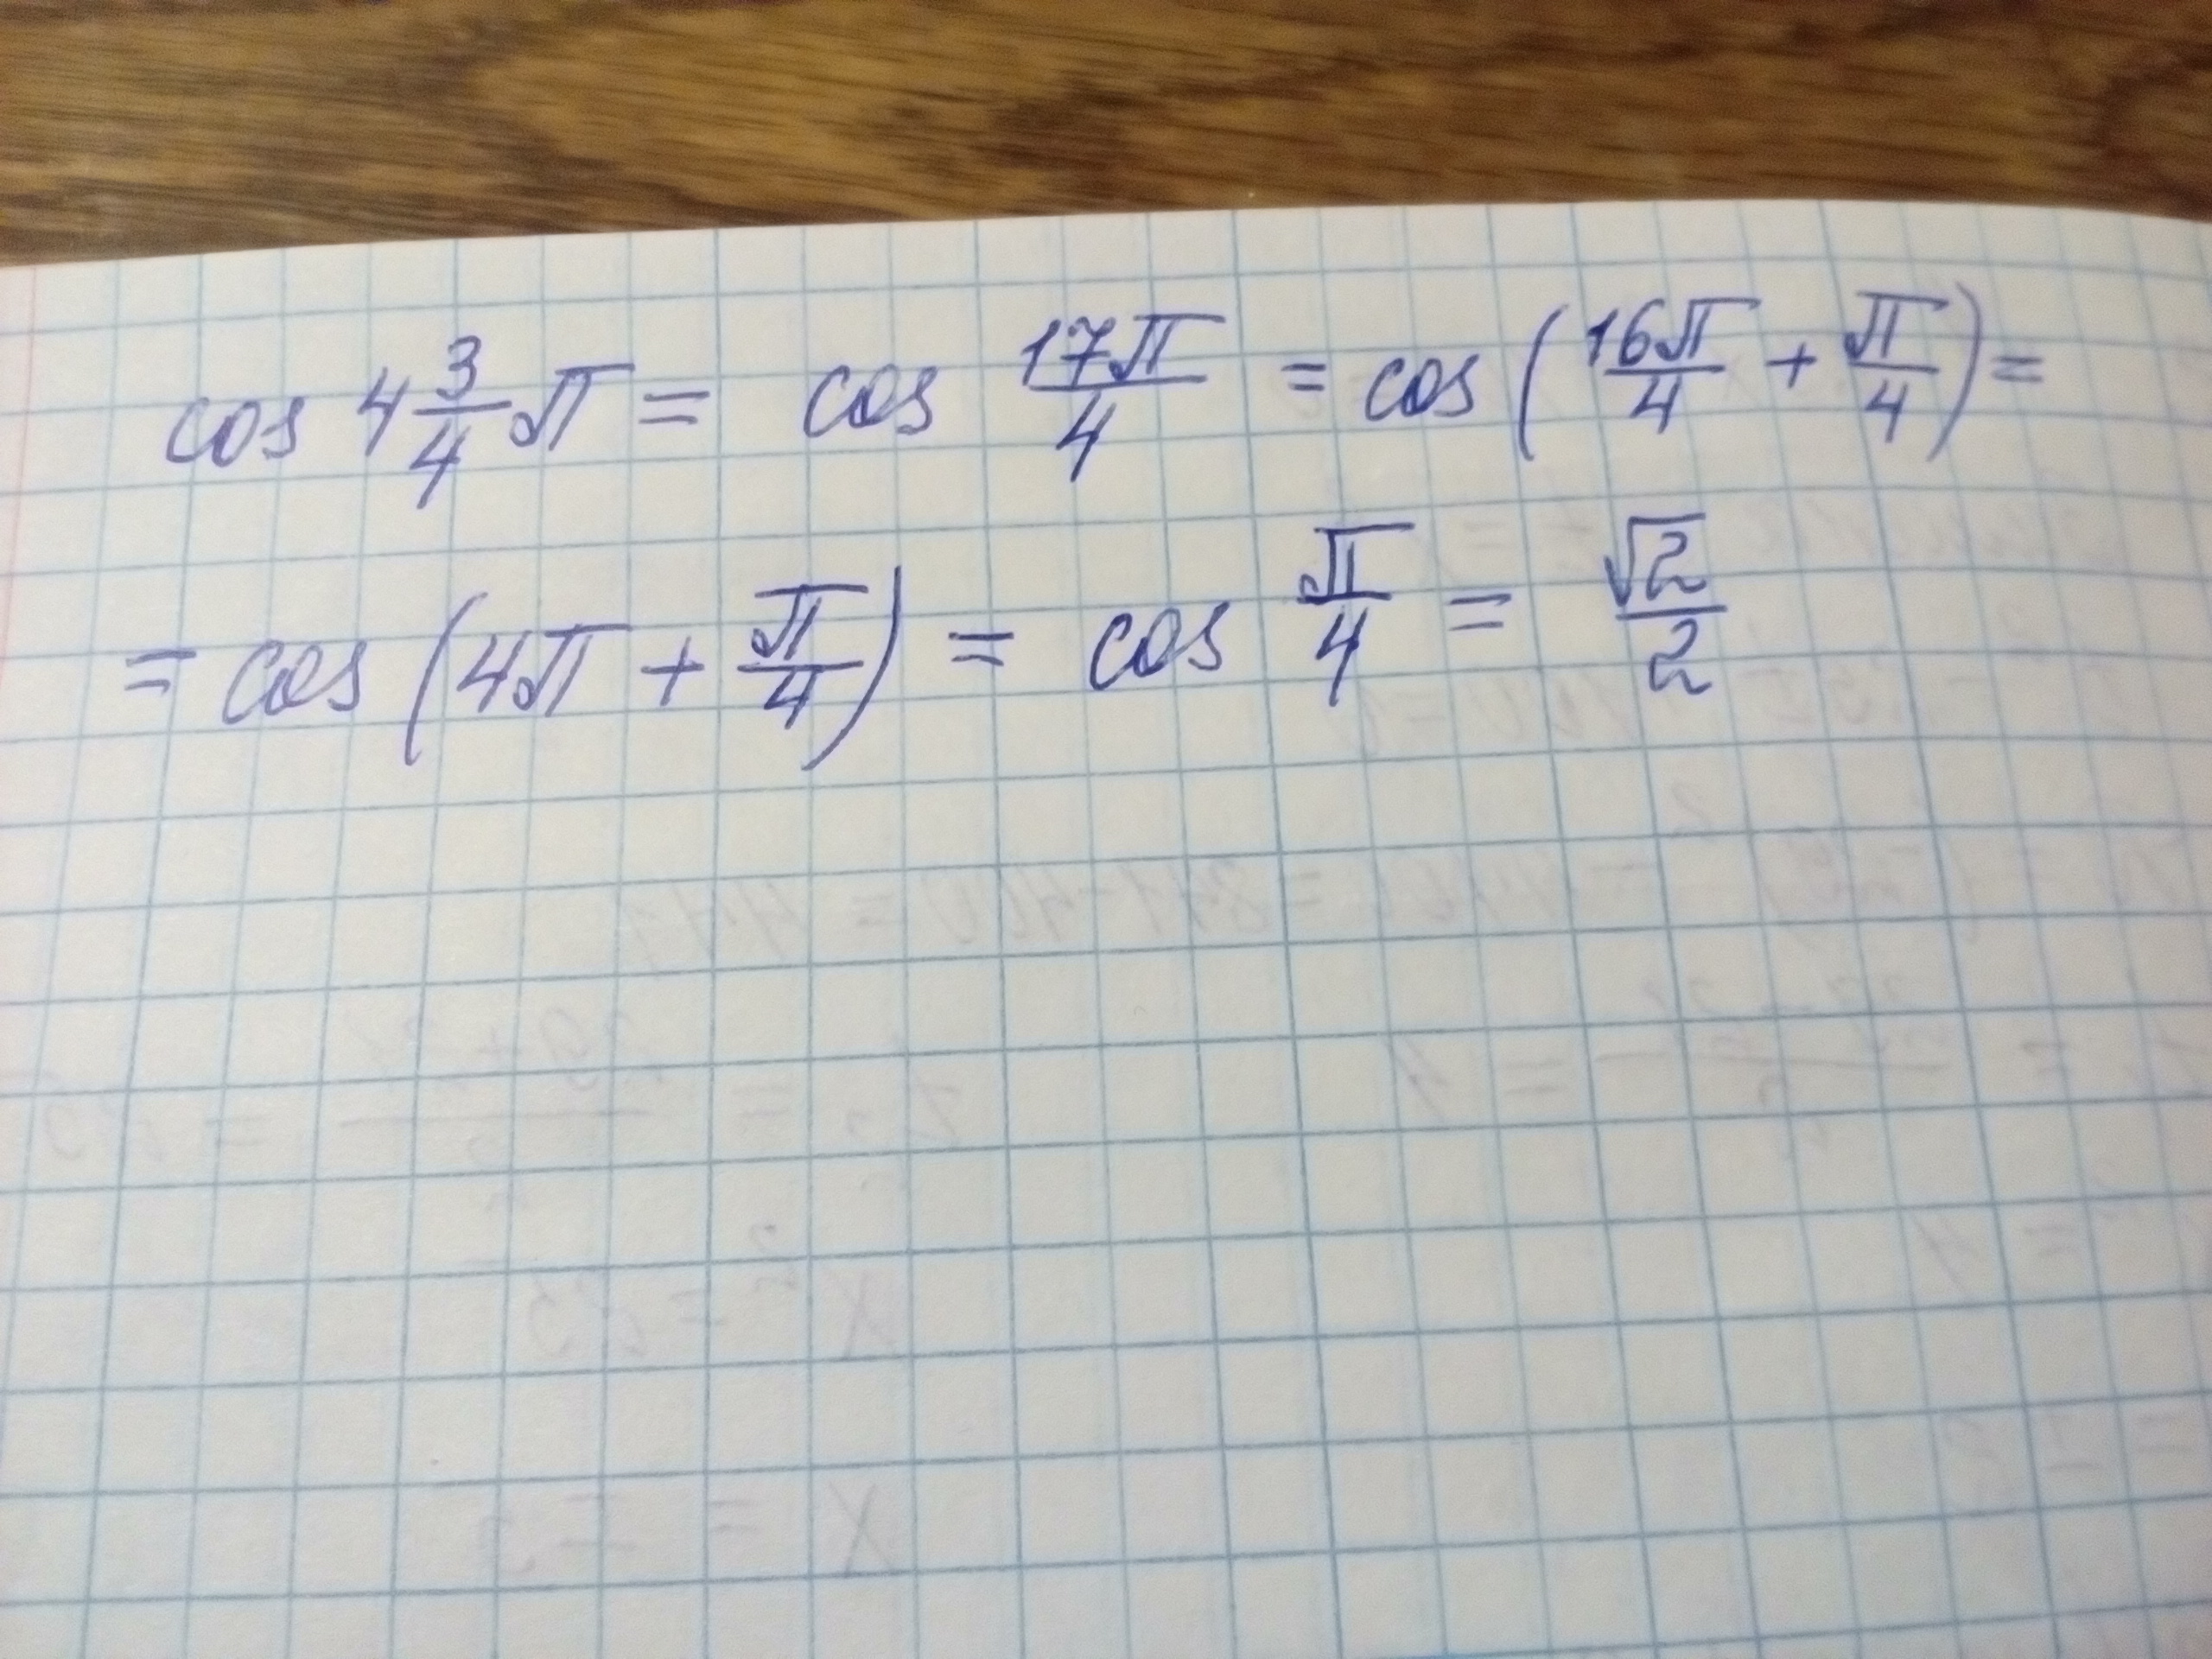 cos 4 3/4 π = cos 17π/4 = cos (16π/4 + π/4) =
= cos (4π + π/4) = cos π/4 = √2/2